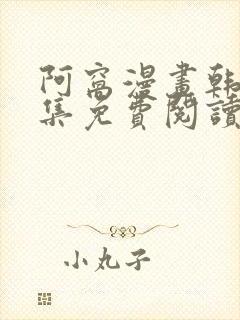 阿窩漫畫韓
集免費閱讀
小丸子